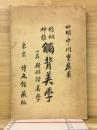 四明中川重麗著
形似神韻
觸背美學
一名新俳諧美學
東京 博文館藏版